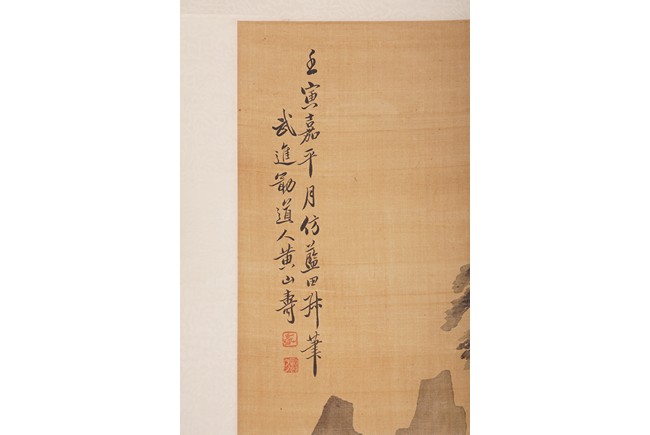 壬寅嘉平月仿藍田叔筆
武進勖道人黄山壽